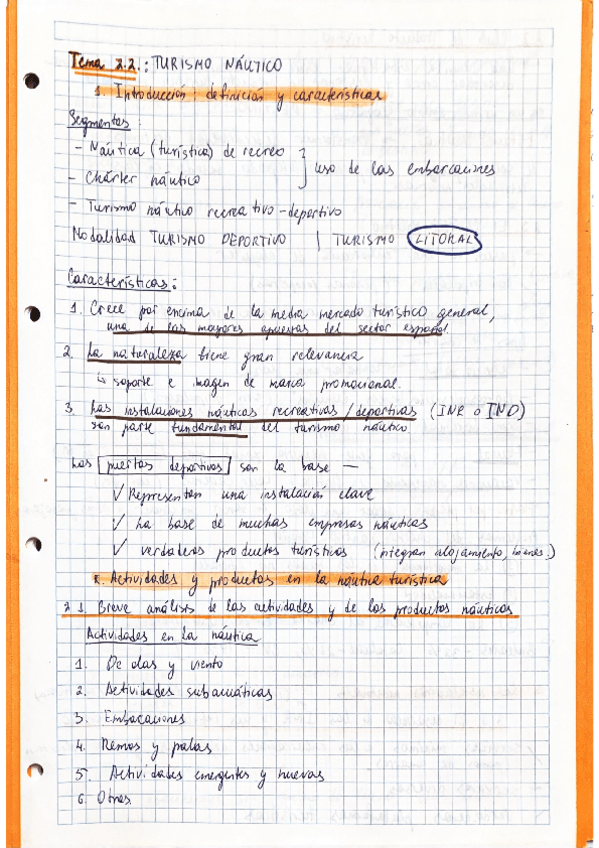 Tema 2.2.: TURISMO NÁUTICO
1. Introducción: definición y características
Segmentos:
- Náutica (turística) de recreo
- Chárter náutico
uso de las embarcaciones
- Turismo náutico recreativo-deportivo
Modalidad TURISMO DEPORTIVO | TURISMO LITORAL
Características:
1. Crece por encima de la media mercado turístico general,
una de las mayores apuestas del sector español
2. La naturaleza tiene gran relevancia
↳ soporte e imagen de marca promocional.
3. Las instalaciones náuticas recreativas/deportivas (INR o IND)
son parte fundamental del turismo náutico
Los puertos deportivos son la base —
✓ Representan una instalación clave
✓ La base de muchas empresas náuticas
✓ verdaderos productos turísticos (integran alojamiento, bienes.)
2. Actividades y productos en la náutica turística
2.1. Breve análisis de las actividades y de los productos náuticos
Actividades en la náutica
1. De olas y viento
2. Actividades subacuáticas
3. Embarcaciones
4. Remos y palas
5. Actividades emergentes y nuevas
6. Otras